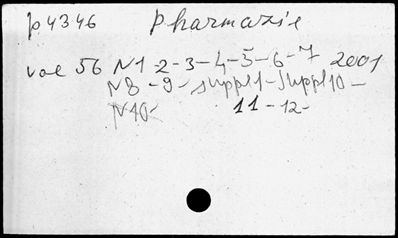 p4346 Pharmazie
vol 56 N1-2-3-4-5-6-7 2001
N8-9-suppl1-suppl10-
N10- 11-12-